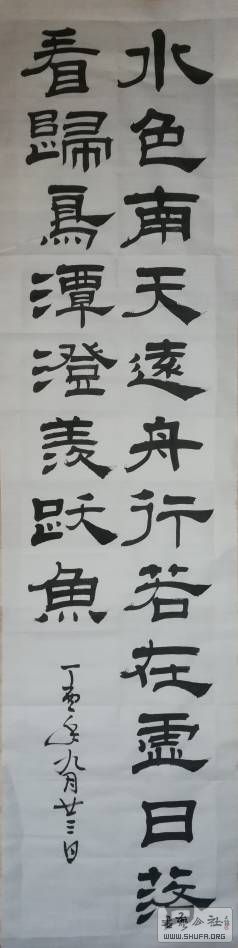 水色南天遠舟行若在虛日落
看歸鳥潭澄羨跃魚
丁年九月廿三日
书艺公社
WWW.SHUFA.ORG